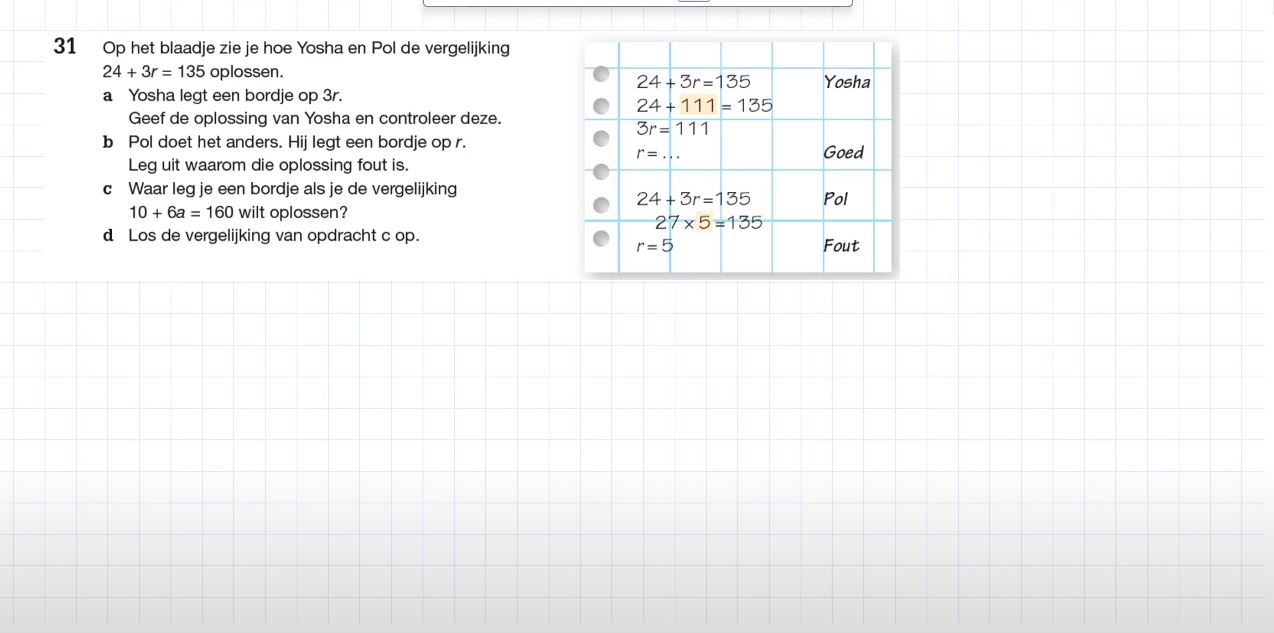 31 Op het blaadje zie je hoe Yosha en Pol de vergelijking
24 + 3r = 135 oplossen.
a Yosha legt een bordje op 3r.
Geef de oplossing van Yosha en controleer deze.
b Pol doet het anders. Hij legt een bordje op r.
Leg uit waarom die oplossing fout is.
c Waar leg je een bordje als je de vergelijking
10 + 6a = 160 wilt oplossen?
d Los de vergelijking van opdracht c op.
24 + 3r = 135 Yosha
24 + 111 = 135
3r = 111
r = ... Goed
24 + 3r = 135 Pol
27 × 5 = 135
r = 5 Fout